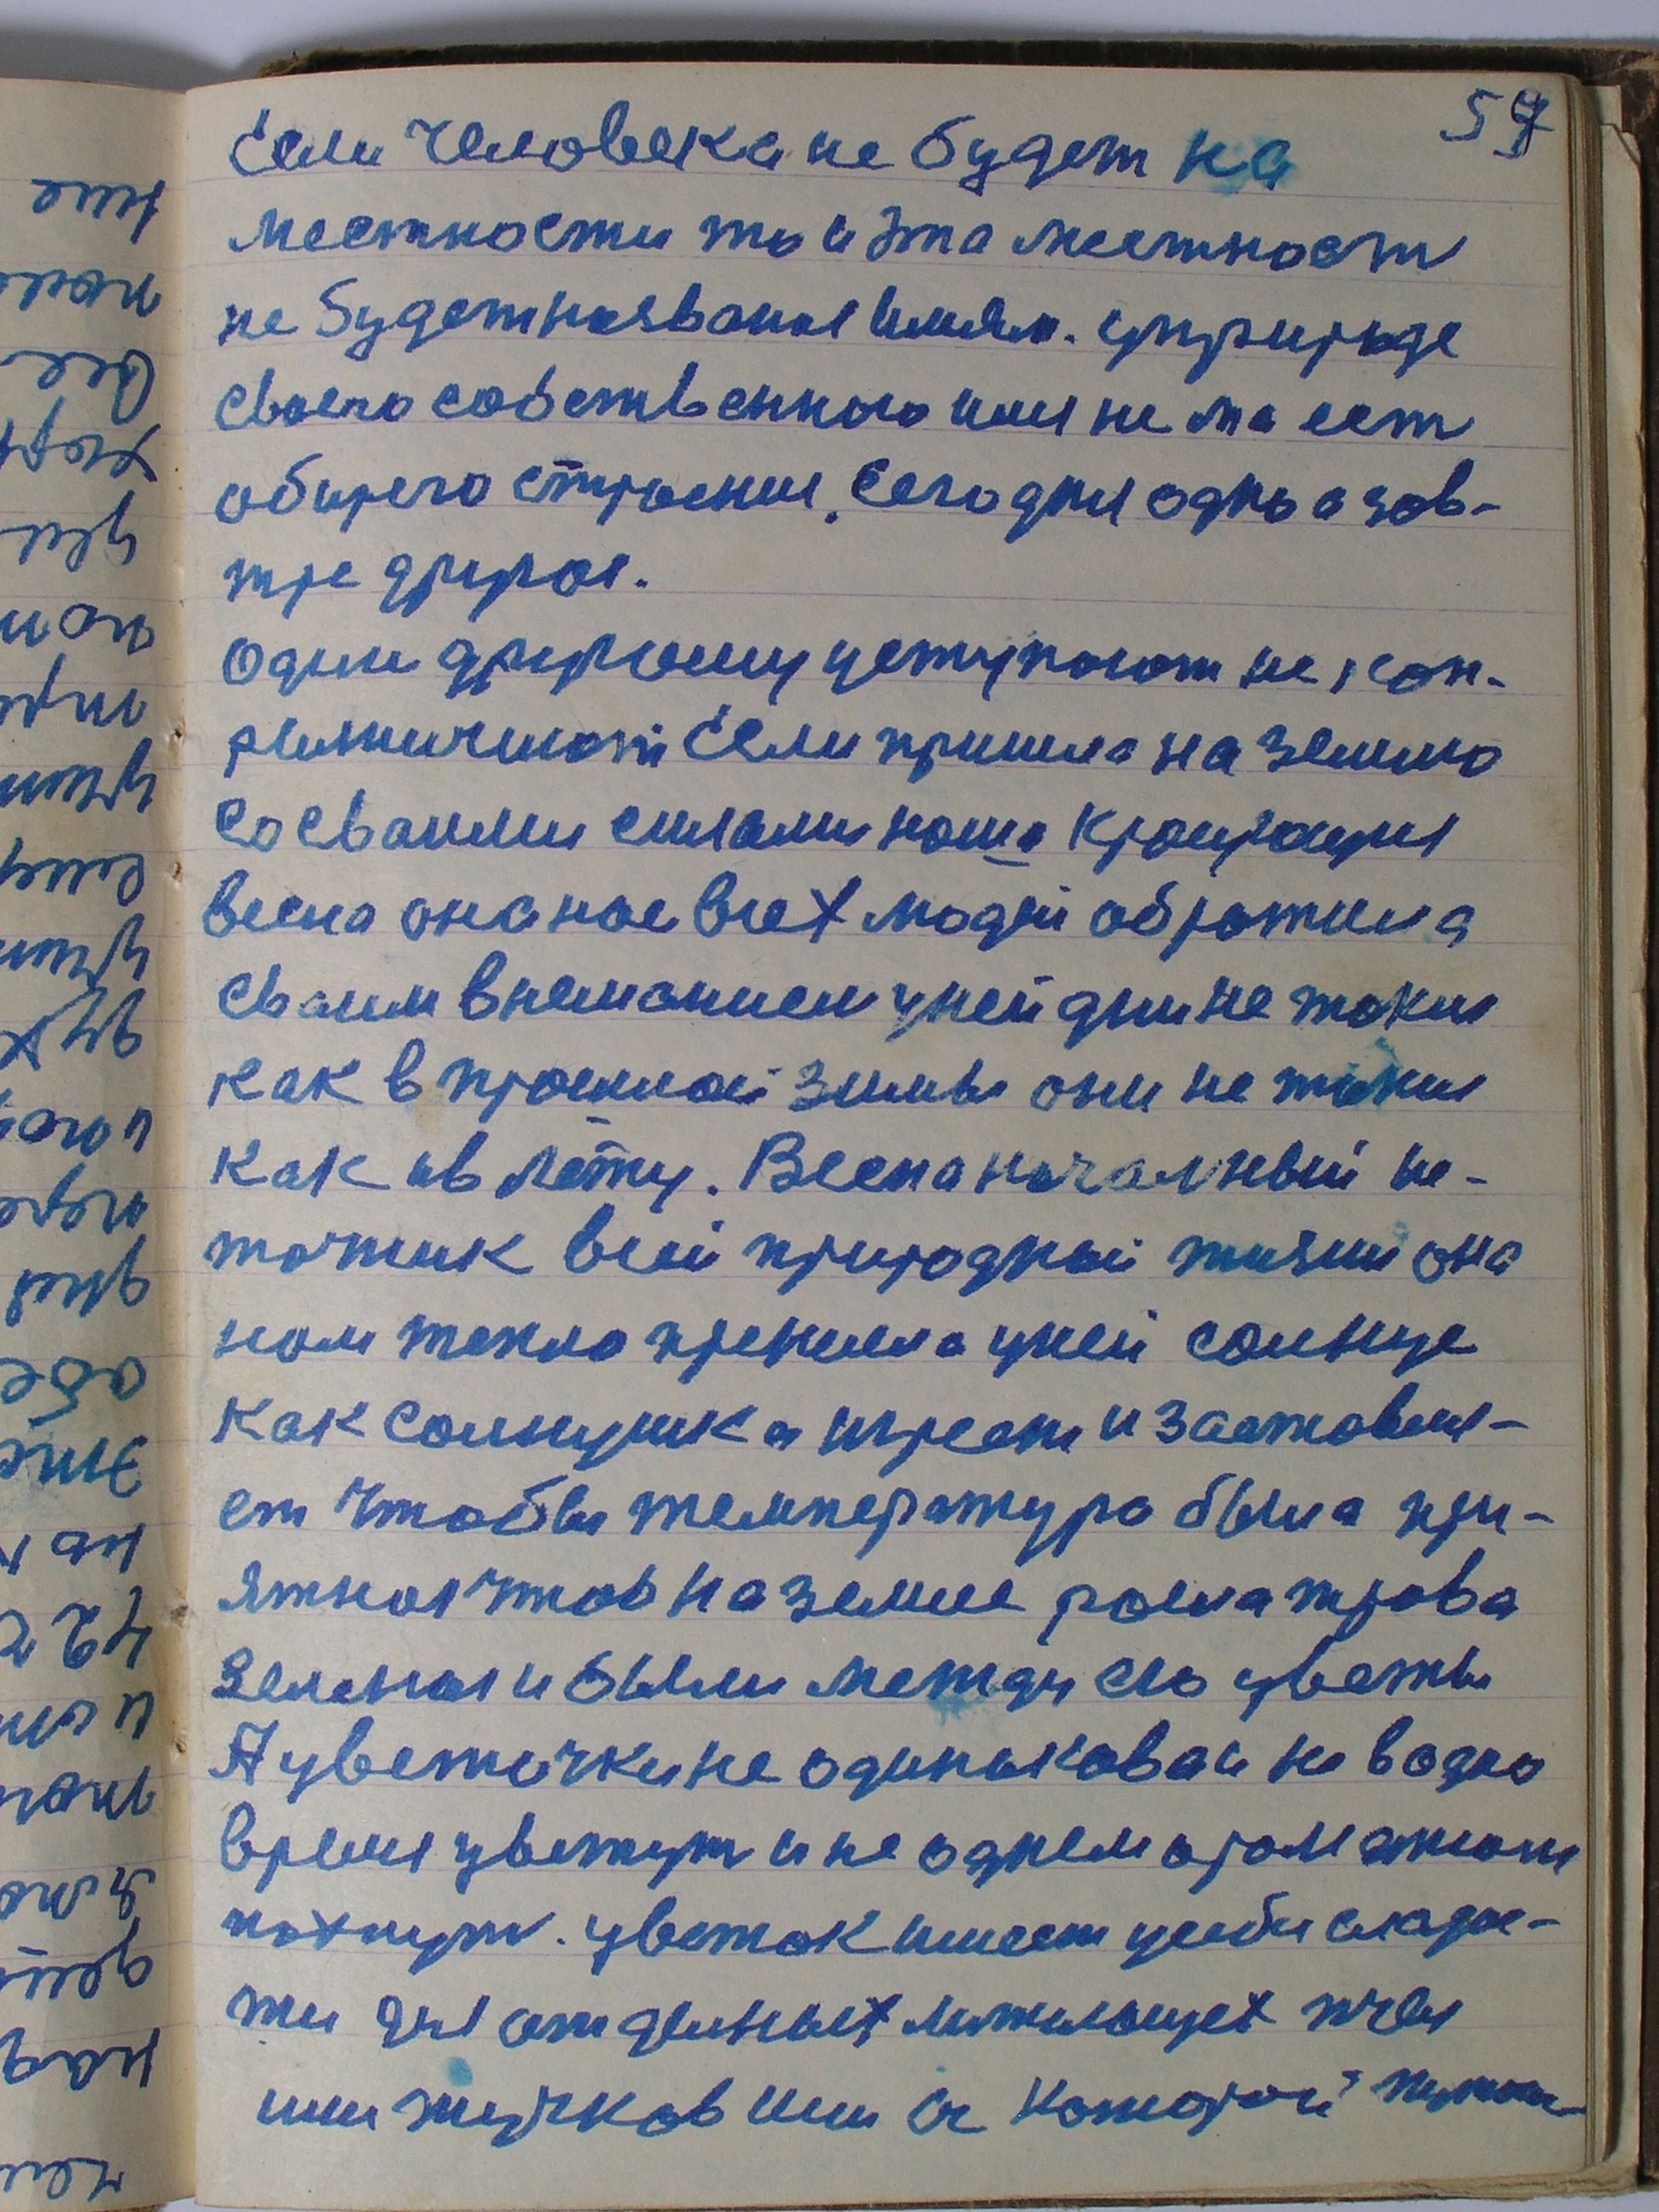 59
Если человека не будет на
местности то и эта местност
не будет названая имям. уприроде
своего собственного имя не ма ест
общего строения. Сегодня одно а зов-
тре другое.
Один другому уступают не кон-
Если пришла на землю
со сваими силами ноша красующия
весна она нас всех людей обротила
сваим внеманием уней дни не такия
как в прошлой зимы они не такия
как ив лету. Весна начальный ис-
тотчик всей природный жизни она
нам тепло пренесла уней солнце
как солнушка играет и заставля-
ет чтобы температура была при-
ятная чтоб на земле росла трова
зеленая и были между ею цветы
А цветочки не одинаковаи не водно
время цветут и не однем
пахнут. цветок имеет усебя сладос-
ти для отделных летающех пчел
или жучков или ос которой